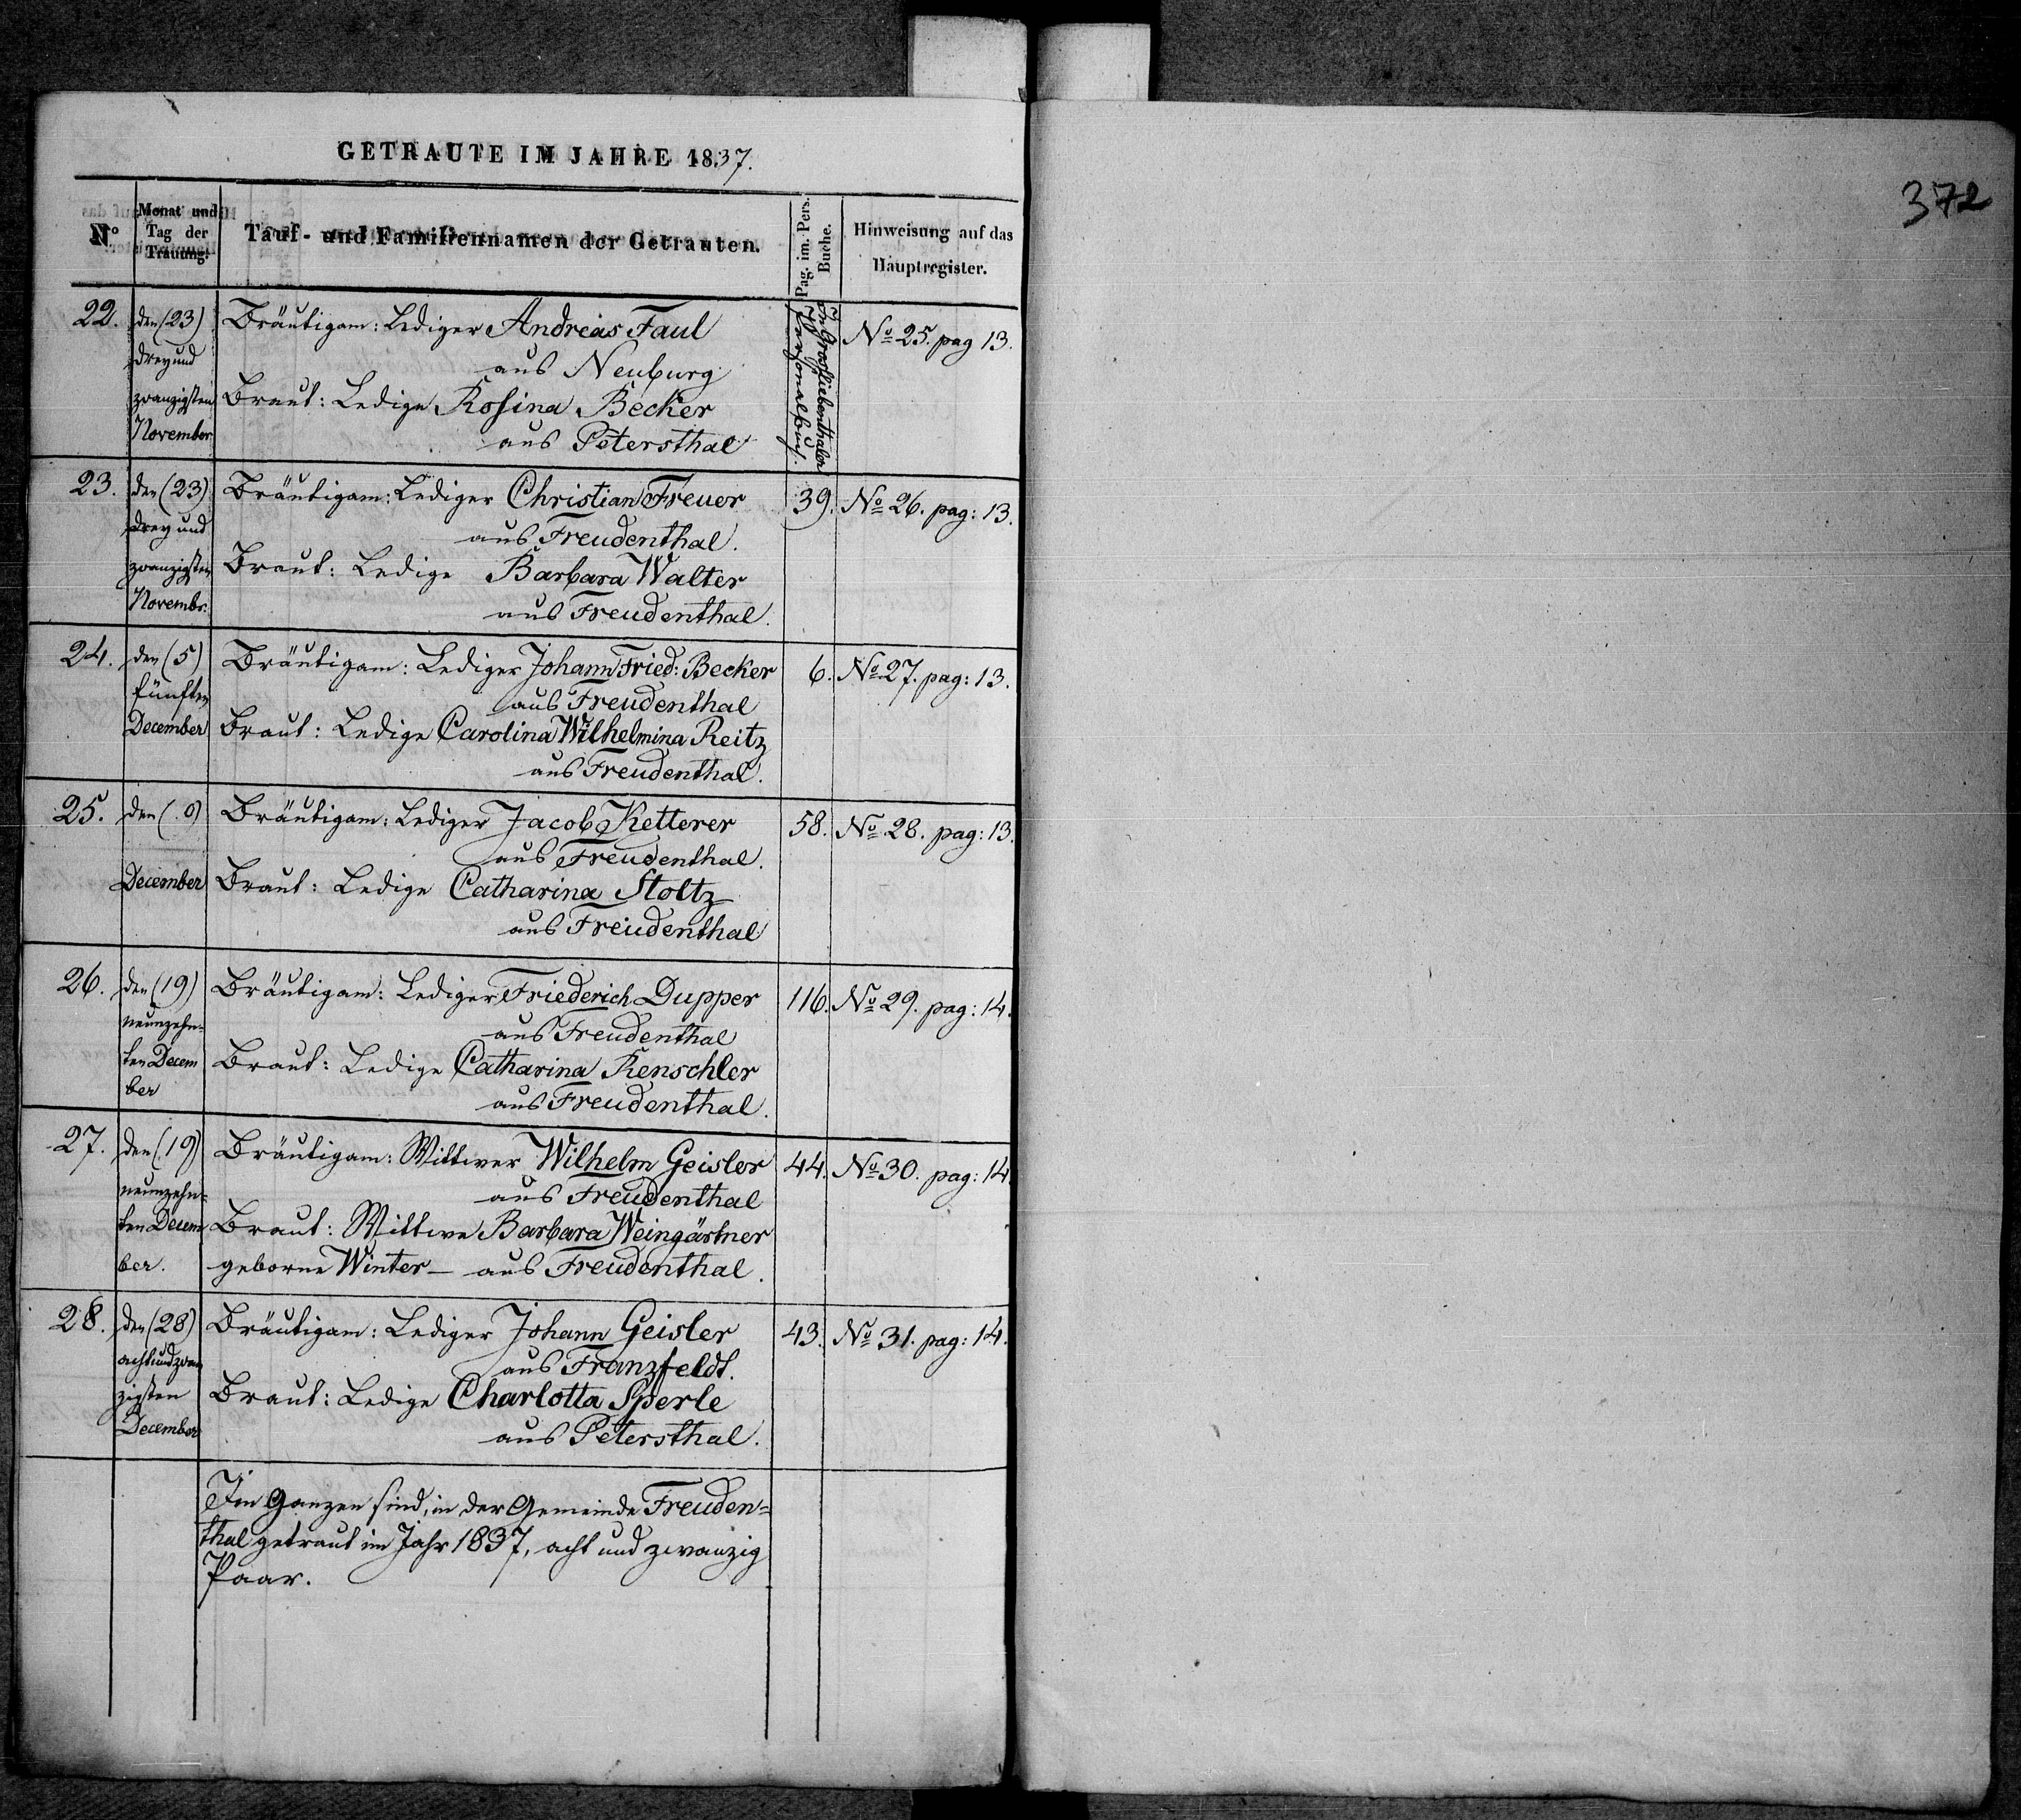 GETRAUTE IM JAHRE 1837.
No
Monat und
Tag der
Trauung.
Tauf- und Familiennamen der Getrauten.
Pag. im. Pers.
Buche.
Hinweisung auf das
Hauptregister.
22. den (23) Bräutigam: Lediger Andreas Faul No 25. pag 13.
drey und aus Neuburg
zwanzigsten Braut: Ledige Rosina Becker
November aus Petersthal
In Grossliebenthaler
Personalbuch.
23. den (23) Bräutigam: Lediger Christian Freuer 39. No 26. pag: 13.
drey und aus Freudenthal.
zwanzigsten Braut: Ledige Barbara Walter
Novembr: aus Freudenthal.
24. den (5) Bräutigam: Lediger Johann Fried: Becker 6. No 27. pag: 13.
fünften aus Freudenthal
December Braut: Ledige Carolina Wilhelmina Reitz
aus Freudenthal.
25. den Bräutigam: Lediger Jacob Ketterer 58. No 28. pag: 13.
aus Freudenthal.
December Braut: Ledige Catharina Stoltz
aus Freudenthal
26. den (19) Bräutigam: Lediger Friederich Dupper 116. No 29. pag: 14.
neunzehn= aus Freudenthal
ten Decem Braut: Ledige Catharina Renschler
ber aus Freudenthal.
27. den (19) Bräutigam: Wittwer Wilhelm Geisler 44. No 30. pag: 14.
neunzehn= aus Freudenthal
ten Decem Braut: Wittwe Barbara Weingärtner
ber. geborne Winter – aus Freudenthal.
28. den (28) Bräutigam: Lediger Johann Geisler 43. No 31. pag: 14.
acht und zwan aus Franzfeldt.
zigsten Braut: Ledige Charlotta Sperle
December aus Petersthal.
Im Ganzen sind, in der Gemeinde Freuden=
thal getraut im Jahr 1837, acht und zwanzig
Paar.
372